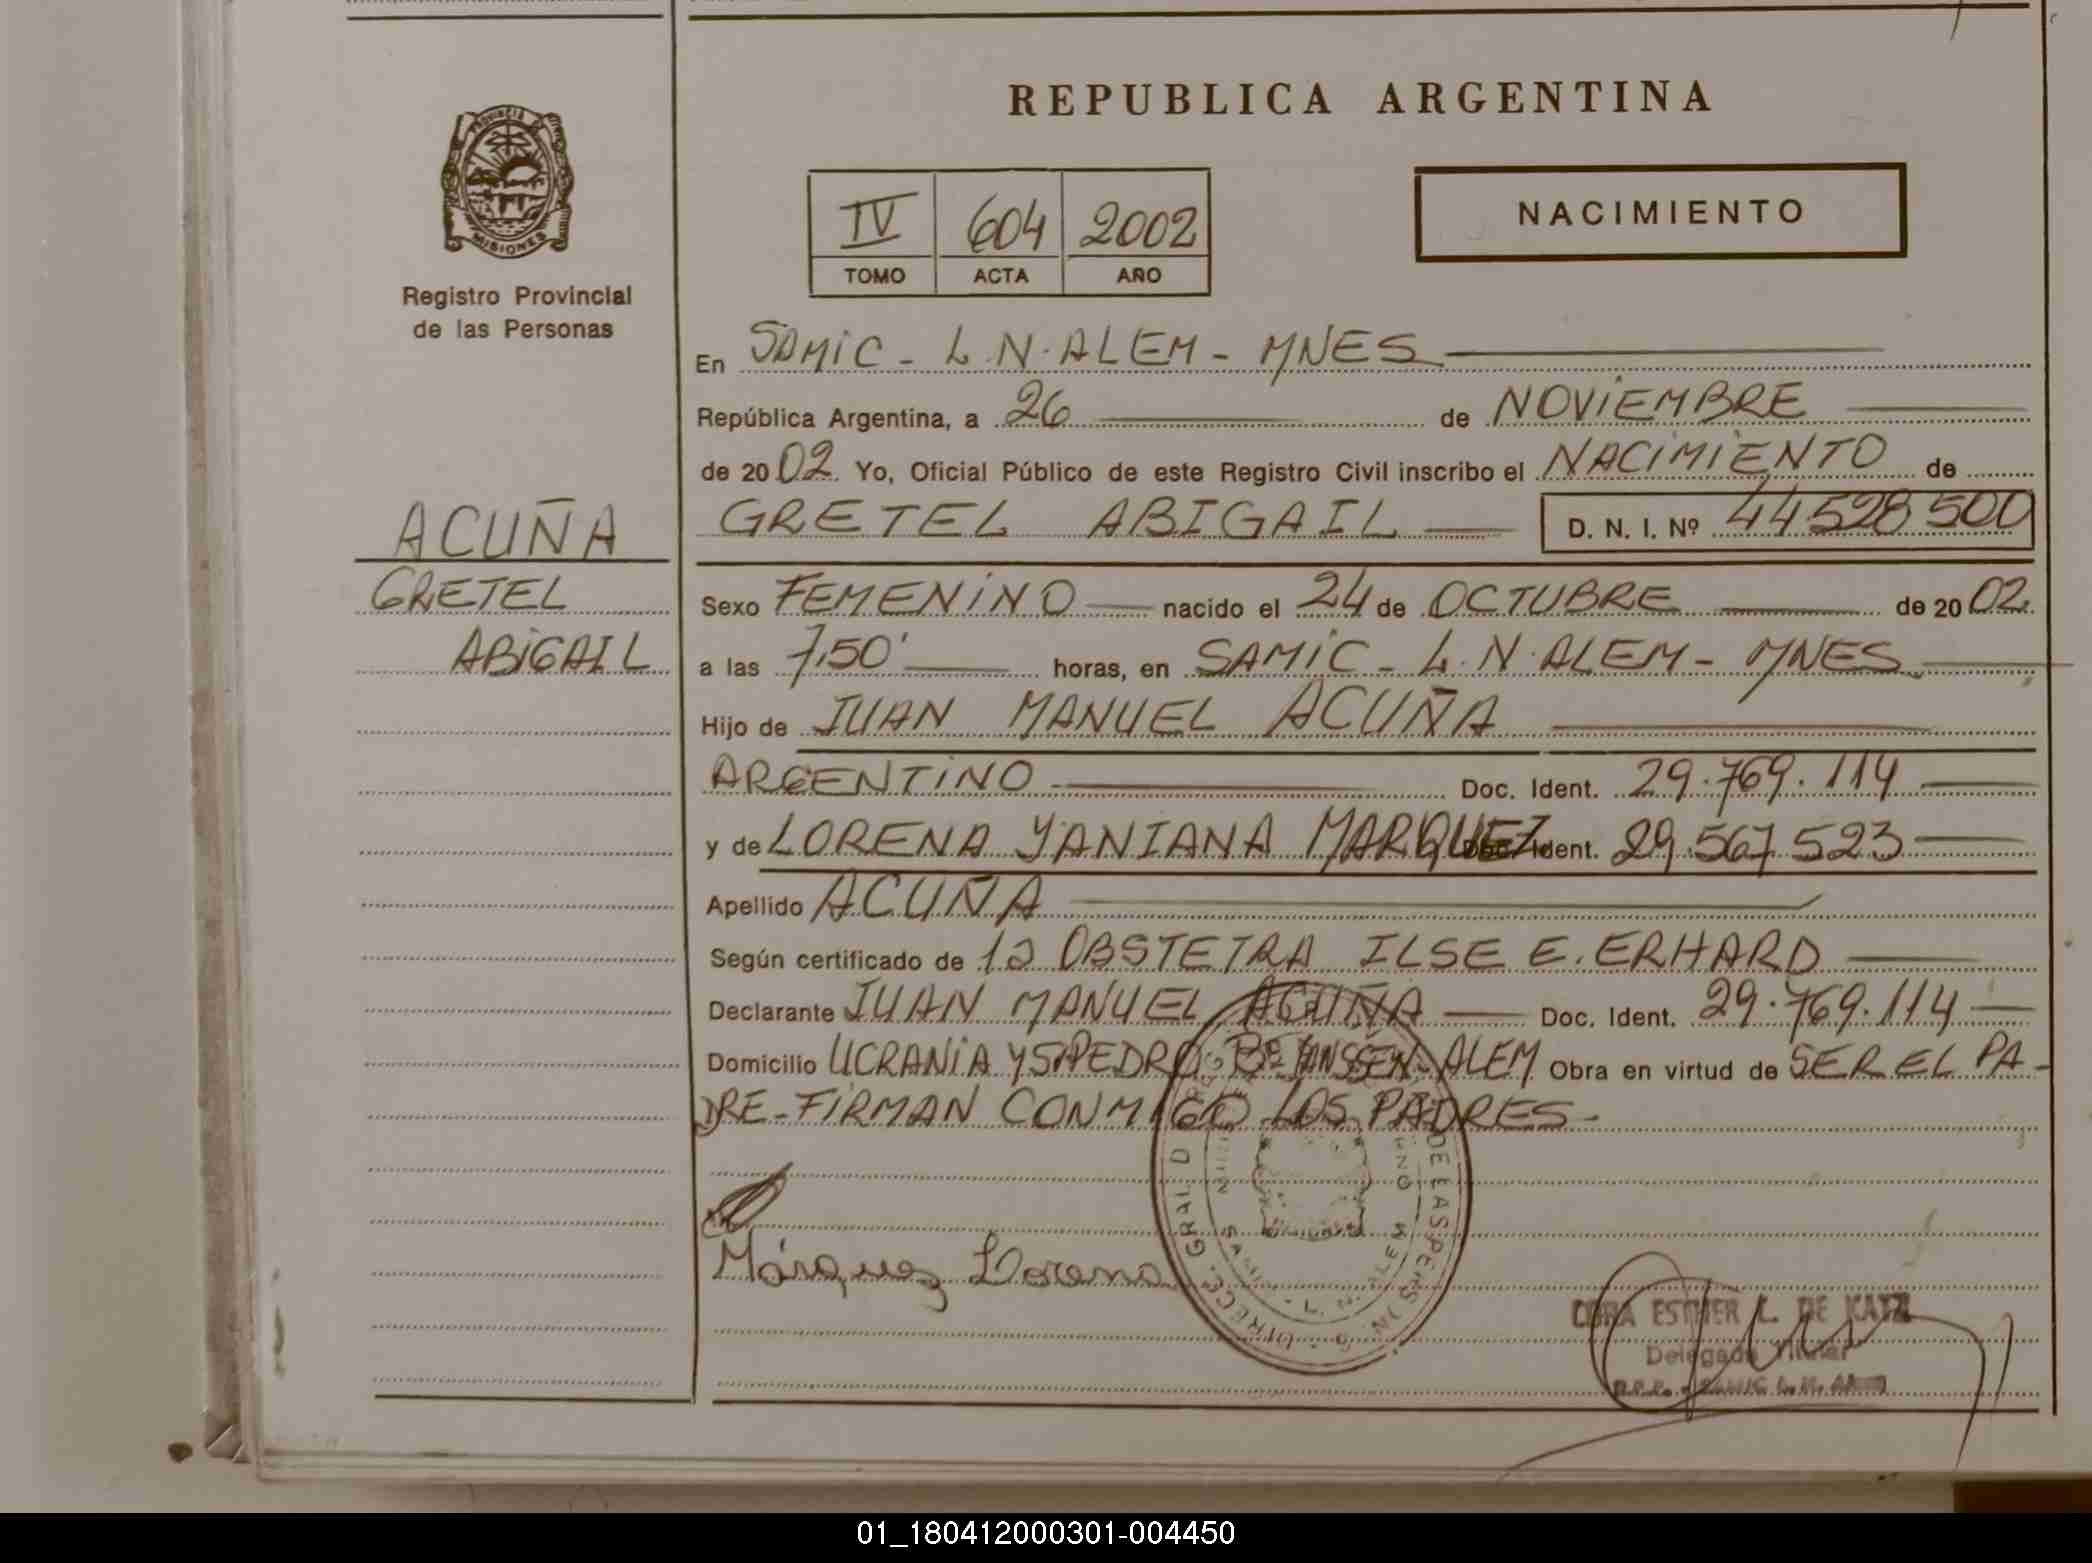 REPUBLICA ARGENTINA
PROVINCIA DE
MISIONES
Registro Provincial
de las Personas
IV 604 2002
TOMO ACTA AÑO
NACIMIENTO
En SAMIC - L.N. ALEM - MNES
República Argentina, a 26 de NOVIEMBRE
de 2002 Yo, Oficial Público de este Registro Civil inscribo el NACIMIENTO de
GRETEL ABIGAIL D. N. I. Nº 44528500
ACUÑA
GRETEL
ABIGAIL
Sexo FEMENINO nacido el 24 de OCTUBRE de 2002.
a las 7,50' horas, en SAMIC - L.N. ALEM - MNES
Hijo de JUAN MANUEL ACUÑA
ARGENTINO Doc. Ident. 29.769.114
y de LORENA YANIANA MARQUEZ Doc. Ident. 29.567.523
Apellido ACUÑA
Según certificado de la OBSTETRA ILSE E. ERHARD
Declarante JUAN MANUEL ACUÑA Doc. Ident. 29.769.114
Domicilio UCRANIA Y S. PEDRO Bº JANSSEN - ALEM Obra en virtud de SER EL PA-
DRE - FIRMAN CONMIGO LOS PADRES -
Márquez Lorena
ESTHER L. DE KATZ
Delegada Titular
R.P.P. - SAMIC L. N. ALEM
01_180412000301-004450